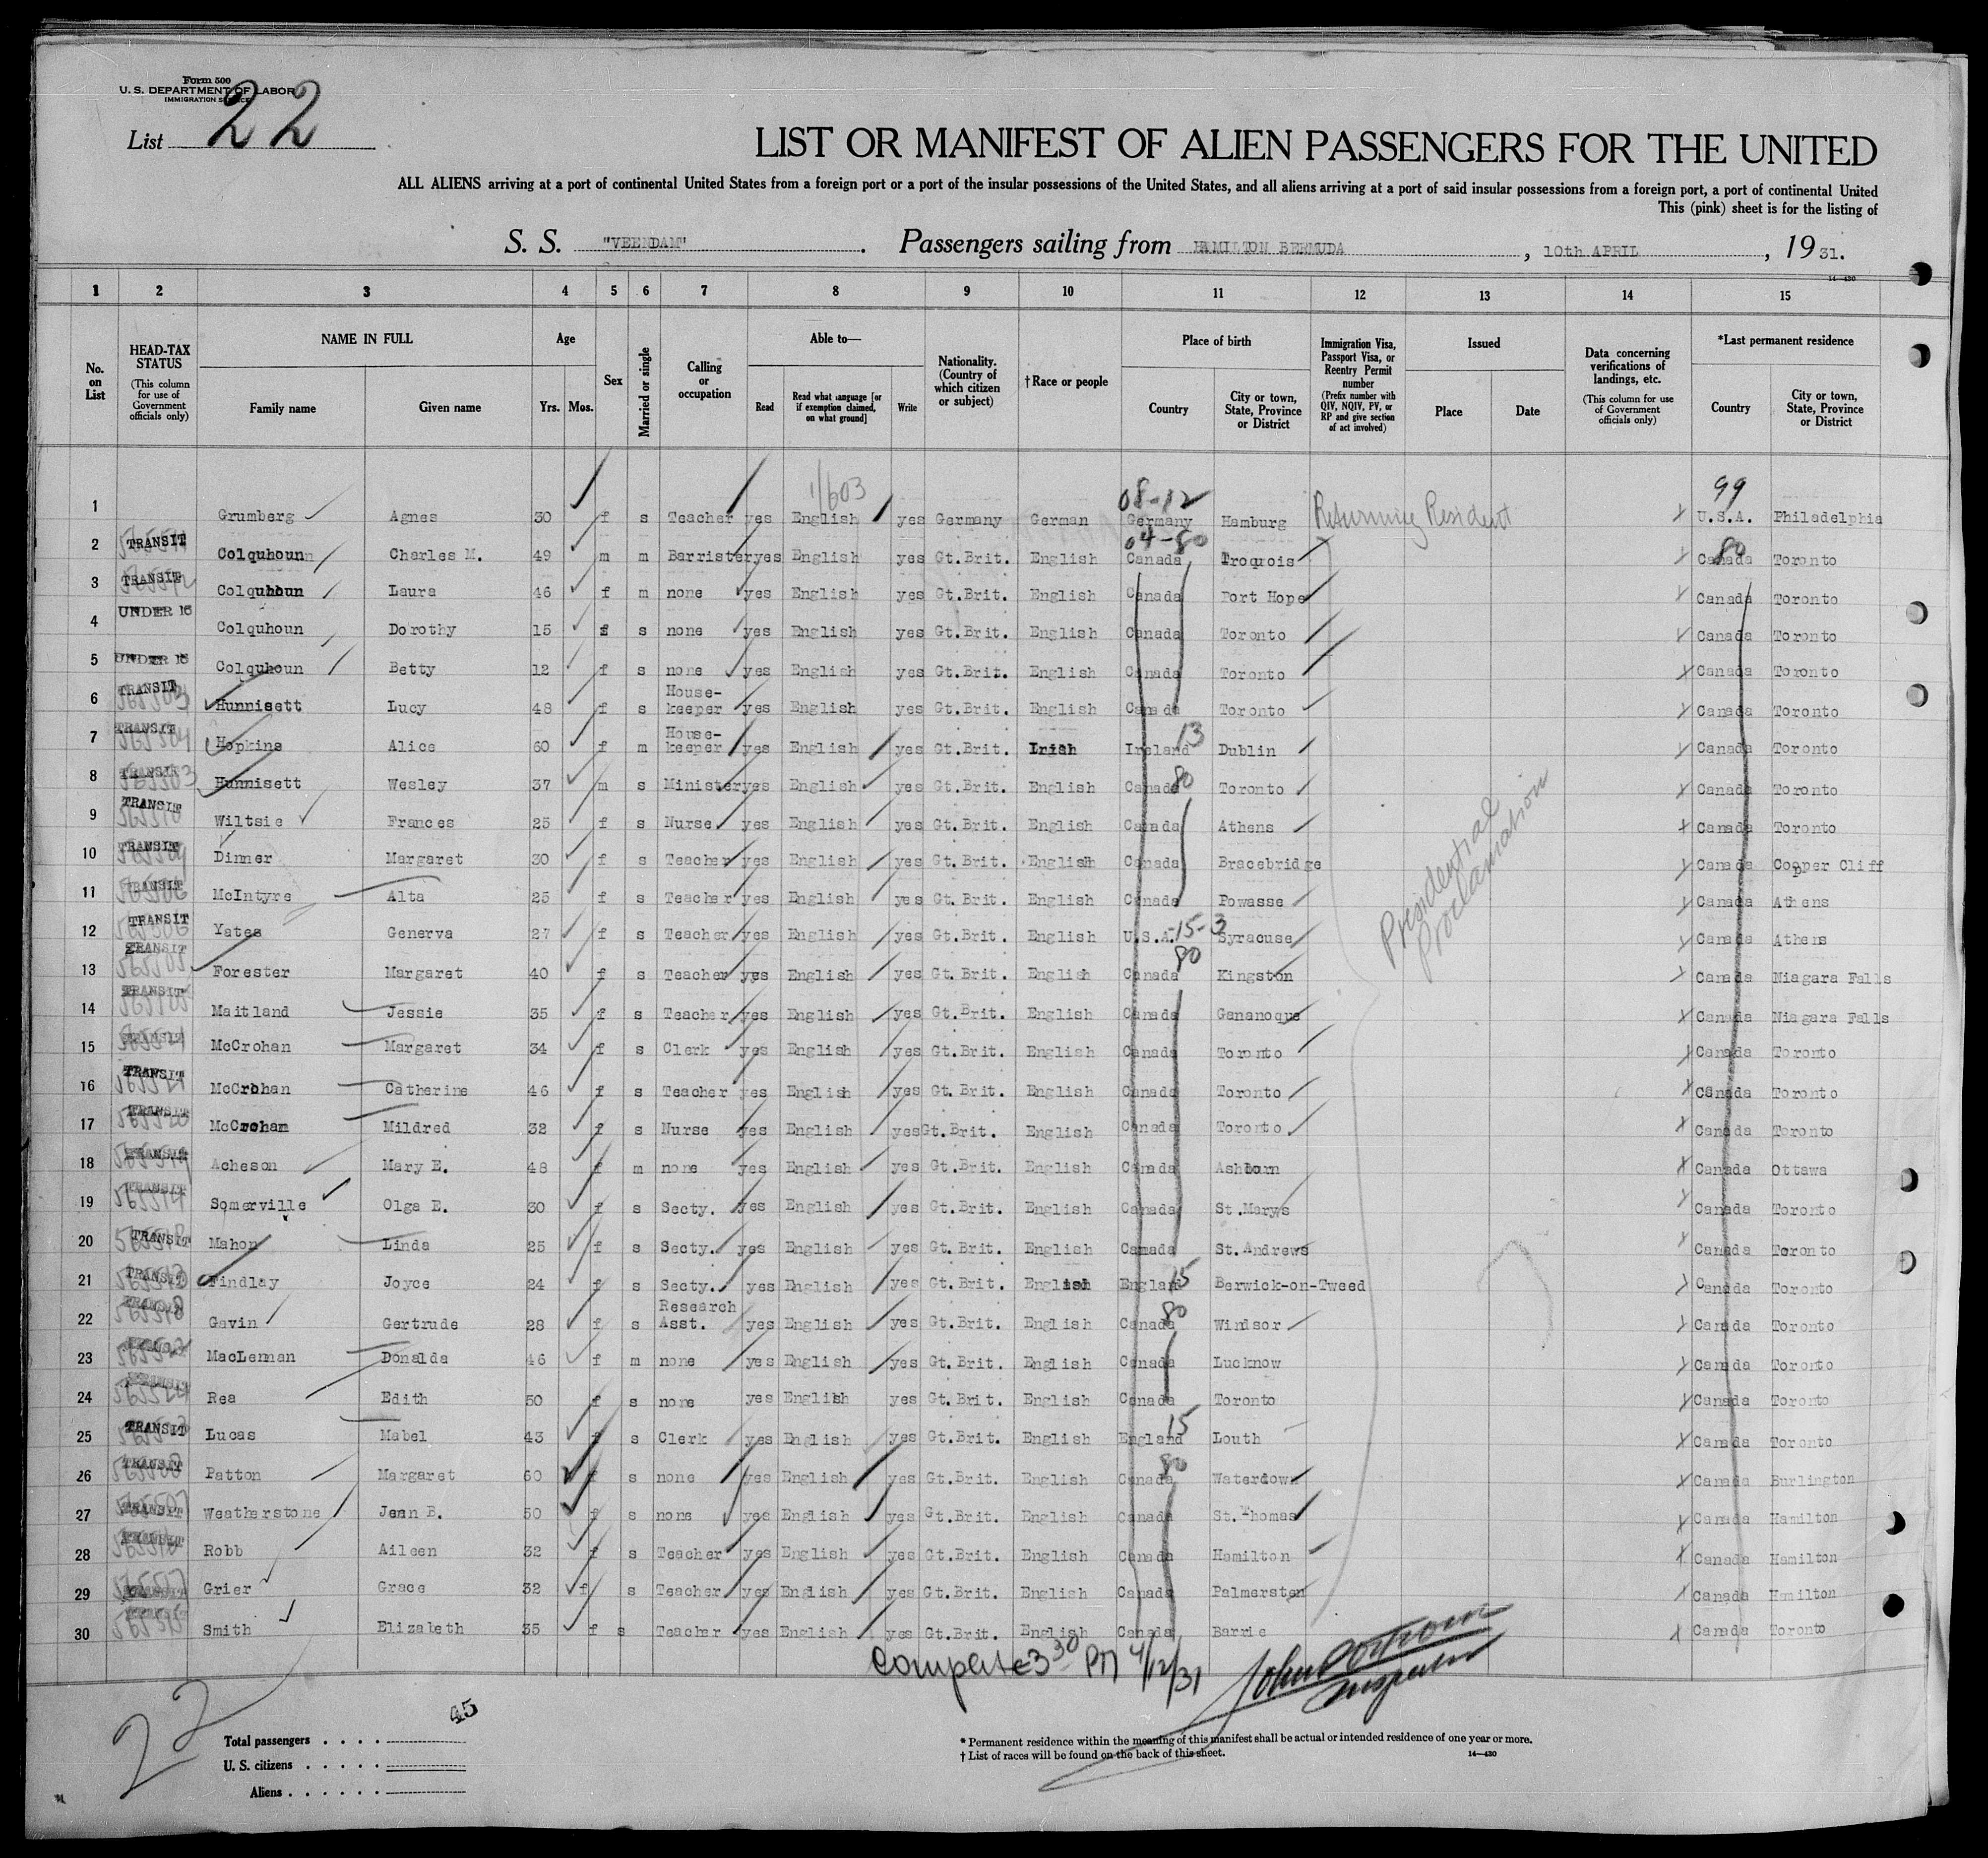 Form 500
U. S. DEPARTMENT OF LABOR
IMMIGRATION SERVICE
List 22
LIST OR MANIFEST OF ALIEN PASSENGERS FOR THE UNITED
ALL ALIENS arriving at a port of continental United States from a foreign port or a port of the insular possessions of the United States, and all aliens arriving at a port of said insular possessions from a foreign port, a port of continental United
This (pink) sheet is for the listing of
S. S. "VEENDAM" . Passengers sailing from HAMILTON BERMUDA , 10th APRIL , 19 31.
14-430
1 2 3 4 5 6 7 8 9 10 11 12 13 14 15
No. on List
HEAD-TAX STATUS (This column for use of Government officials only)
NAME IN FULL Family name Given name
Age Yrs. Mos.
Sex
Married or single
Calling or occupation
Able to— Read Read what language [or if exemption claimed, on what ground] Write
Nationality. (Country of which citizen or subject)
†Race or people
Place of birth Country City or town, State, Province or District
Immigration Visa, Passport Visa, or Reentry Permit number (Prefix number with QIV, NQIV, PV, or RP and give section of act involved)
Issued Place Date
Data concerning verifications of landings, etc. (This column for use of Government officials only)
*Last permanent residence Country City or town, State, Province or District
1/603 08-12 99
1 Grumberg Agnes 30 f s Teacher yes English yes Germany German Germany Hamburg Returning Resident U.S.A. Philadelphia
04-80 80
2 TRANSIT Colquhoun Charles M. 49 m m Barrister yes English yes Gt.Brit. English Canada Iroquois Canada Toronto
3 TRANSIT Colquhoun Laura 46 f m none yes English yes Gt.Brit. English Canada Port Hope Canada Toronto
4 UNDER 16 Colquhoun Dorothy 15 f s none yes English yes Gt.Brit. English Canada Toronto Canada Toronto
5 UNDER 16 Colquhoun Betty 12 f s none yes English yes Gt.Brit. English Canada Toronto Canada Toronto
6 TRANSIT Hunnisett Lucy 48 f s House-keeper yes English yes Gt.Brit. English Canada Toronto Canada Toronto
7 TRANSIT Hopkins Alice 60 f m House-keeper yes English yes Gt.Brit. Irish Ireland 13 Dublin Canada Toronto
8 TRANSIT Hunnisett Wesley 37 m s Minister yes English yes Gt.Brit. English Canada 80 Toronto Canada Toronto
9 TRANSIT Wiltsie Frances 25 f s Nurse yes English yes Gt.Brit. English Canada Athens Canada Toronto
10 TRANSIT Dinner Margaret 30 f s Teacher yes English yes Gt.Brit. English Canada Bracebridge Canada Copper Cliff
11 TRANSIT McIntyre Alta 25 f s Teacher yes English yes Gt.Brit. English Canada Powasse Canada Athens
12 TRANSIT Yates Generva 27 f s Teacher yes English yes Gt.Brit. English U.S.A. 15-3 Syracuse Canada Athens
13 TRANSIT Forester Margaret 40 f s Teacher yes English yes Gt.Brit. English Canada 80 Kingston Canada Niagara Falls
Presidential Proclamation
14 TRANSIT Maitland Jessie 35 f s Teacher yes English yes Gt.Brit. English Canada Gananoque Canada Niagara Falls
15 TRANSIT McCrohan Margaret 34 f s Clerk yes English yes Gt.Brit. English Canada Toronto Canada Toronto
16 TRANSIT McCrohan Catherine 46 f s Teacher yes English yes Gt.Brit. English Canada Toronto Canada Toronto
17 TRANSIT McCrohan Mildred 32 f s Nurse yes English yes Gt.Brit. English Canada Toronto Canada Toronto
18 TRANSIT Acheson Mary E. 48 f m none yes English yes Gt.Brit. English Canada Ashburn Canada Ottawa
19 TRANSIT Somerville Olga E. 30 f s Secty. yes English yes Gt.Brit. English Canada St.Marys Canada Toronto
20 TRANSIT Mahon Linda 25 f s Secty. yes English yes Gt.Brit. English Canada St.Andrews Canada Toronto
21 TRANSIT Findlay Joyce 24 f s Secty. yes English yes Gt.Brit. English England 15 Berwick-on-Tweed Canada Toronto
22 TRANSIT Gavin Gertrude 28 f s Research Asst. yes English yes Gt.Brit. English Canada 80 Windsor Canada Toronto
23 MacLennan Donalda 46 f m none yes English yes Gt.Brit. English Canada Lucknow Canada Toronto
24 TRANSIT Rea Edith 50 f s none yes English yes Gt.Brit. English Canada Toronto Canada Toronto
25 TRANSIT Lucas Mabel 43 f s Clerk yes English yes Gt.Brit. English England 15 Louth Canada Toronto
26 TRANSIT Patton Margaret 60 f s none yes English yes Gt.Brit. English Canada 80 Waterdown Canada Burlington
27 TRANSIT Weatherstone Jean B. 50 f s none yes English yes Gt.Brit. English Canada St.Thomas Canada Hamilton
28 TRANSIT Robb Aileen 32 f s Teacher yes English yes Gt.Brit. English Canada Hamilton Canada Hamilton
29 TRANSIT Grier Grace 32 f s Teacher yes English yes Gt.Brit. English Canada Palmerston Canada Hamilton
30 TRANSIT Smith Elizabeth 35 f s Teacher yes English yes Gt.Brit. English Canada Barrie Canada Toronto
Complete 3 30 PM 4/12/31
Inspector
22
45
Total passengers . . . .
U. S. citizens . . . . .
Aliens . . . . . .
* Permanent residence within the meaning of this manifest shall be actual or intended residence of one year or more.
† List of races will be found on the back of this sheet. 14-430